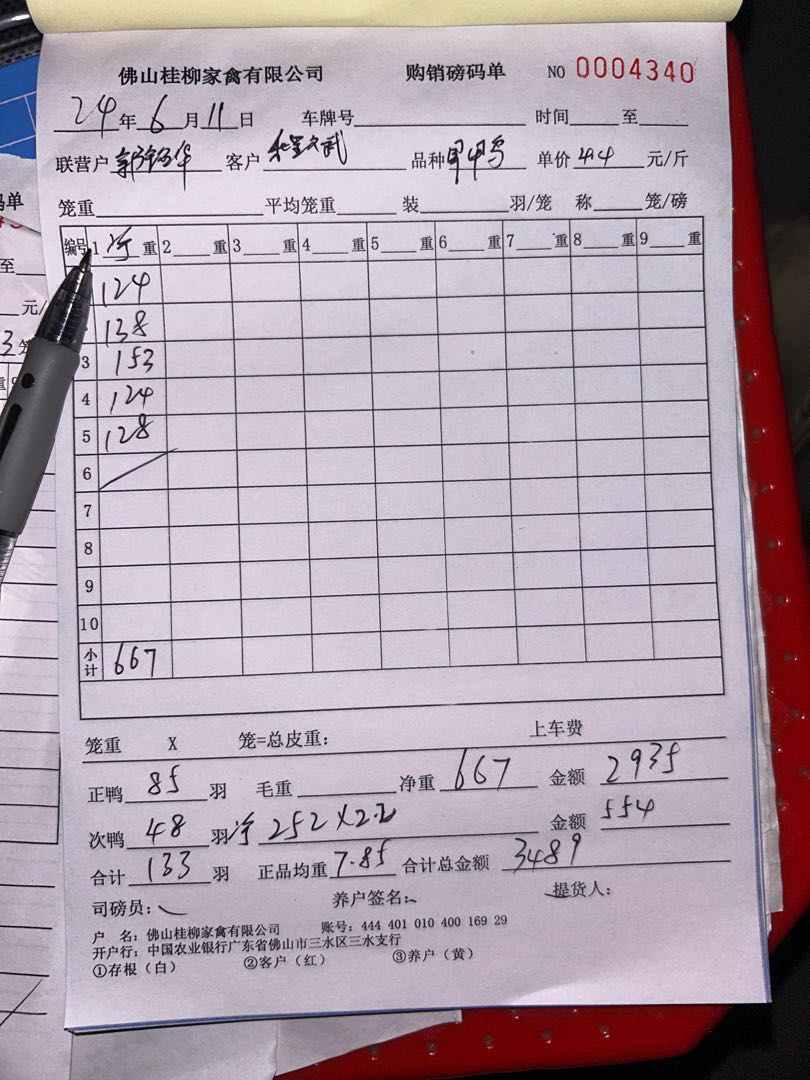 佛山桂柳家禽有限公司 购销磅码单 NO 0004340
24年6月11日 车牌号 时间 至
联营户 郭锦华 客户 文武 品种 甲甲鸟 单价 4.4 元/斤
笼重 平均笼重 装 羽/笼 称 笼/磅
编号 1 净 重 2 重 3 重 4 重 5 重 6 重 7 重 8 重 9 重
124
138
3 153
4 124
5 128
6
7
8
9
10
小计 667
笼重 X 笼=总皮重: 上车费
正鸭 85 羽 毛重 净重 667 金额 2935
次鸭 48 羽 净 252×2.2 金额 554
合计 133 羽 正品均重 7.85 合计总金额 3489
司磅员: 养户签名: 提货人:
户 名: 佛山桂柳家禽有限公司 账号: 444 401 010 400 169 29
开户行: 中国农业银行广东省佛山市三水区三水支行
①存根（白） ②客户（红） ③养户（黄）
码单
至
元/